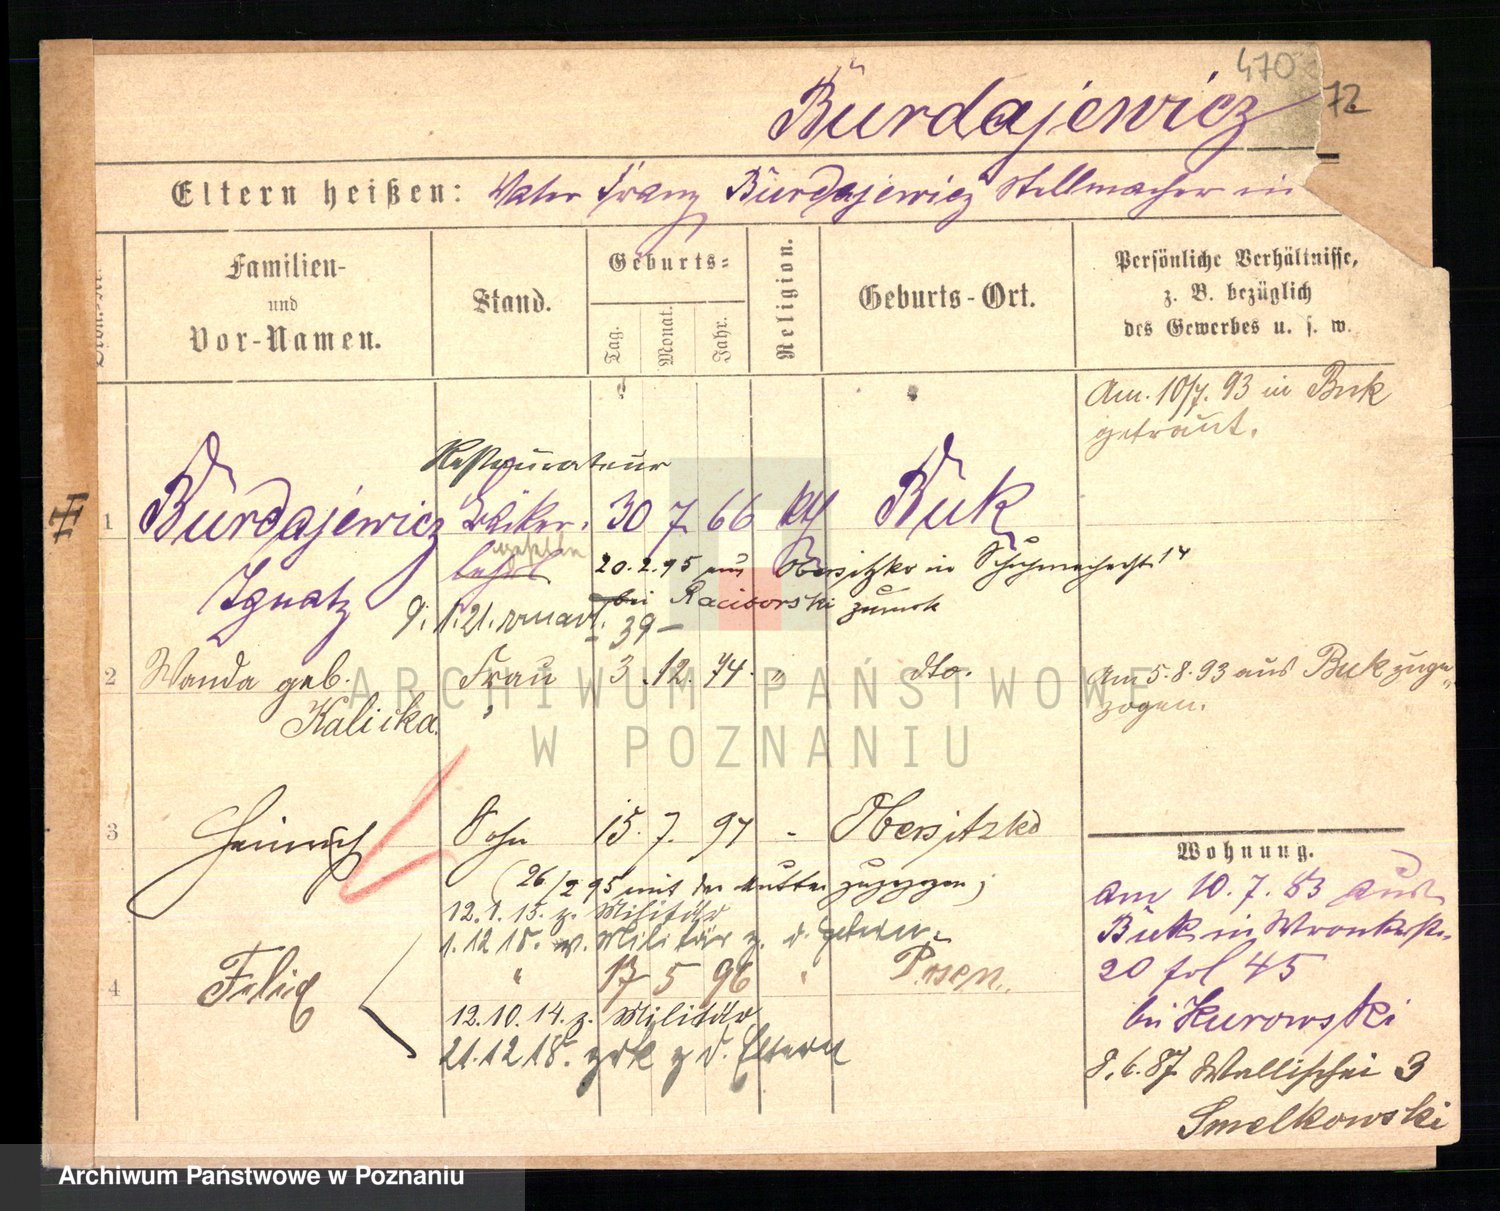 470
72
Burdajewicz
Eltern heißen: Vater Franz Burdajewicz Stellmacher in
Familien- und Vor-Namen.
Stand.
Geburts-
Tag.
Monat.
Jahr.
Religion.
Geburts-Ort.
Persönliche Verhältnisse,
z. B. bezüglich
des Gewerbes u. s. w.
Am. 10/7. 93 in Buk
getraut.
Restaurateur
1 Burdajewicz 30 7 66 kth Buk
Ignatz
20.2.95 aus Obersitzko in Schuhmacherstr 14
bei Raciborski zurück
39
2 Wanda geb. Frau 3. 12. 74. " dto.
Kalicka
Am 5.8.93 aus Buk zuge-
zogen.
3 Heinrich Sohn 15. 7. 94 - Obersitzko
(26/2 95 mit der Mutter zugezogen)
12.1.15. z. Militär
1.12 18. v. Militär z. d. Eltern
4 Felix " 17 5 96 " Posen.
12.10.14. z. Militär
21.12 18. zrk z d. Eltern
Wohnung.
am 10.7.83 aus
Buk in Wronkerstr.
20 fol 45
bei Kurowski
8.6.87 Wallischei 3
Smelkowski
ARCHIWUM PAŃSTWOWE
W POZNANIU
Archiwum Państwowe w Poznaniu